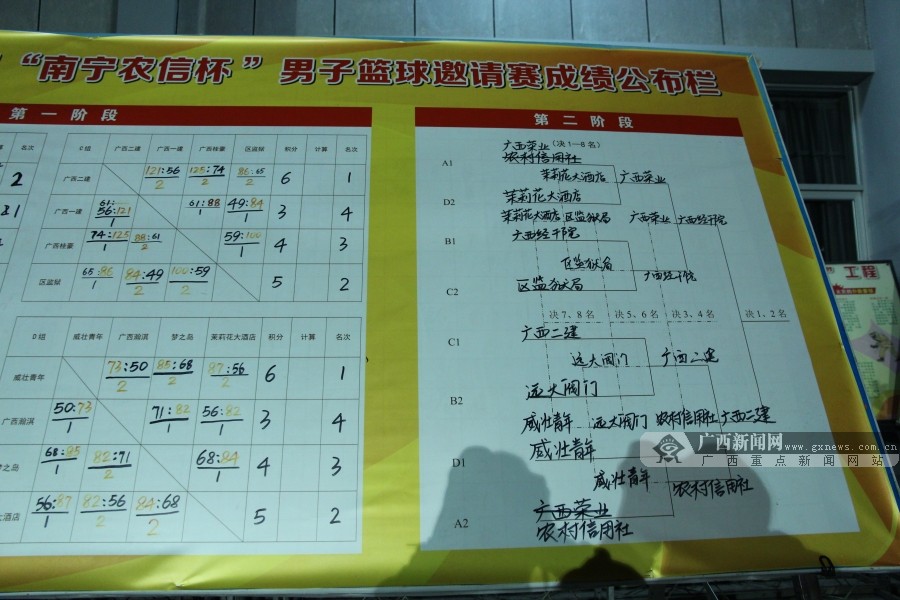 “南宁农信杯” 男子篮球邀请赛成绩公布栏
第一阶段
名次
2
21
B组 广西二建 广西一建 广西桂豪 区监狱 积分 计算 名次
广西二建 121:56 2 125:74 2 86:65 2 6 1
广西一建 61: 56:121 1 61:88 1 49:84 1 3 4
广西桂豪 74:125 1 88:61 2 59:100 1 4 3
区监狱 65:86 1 84:49 2 100:59 2 5 2
D组 威壮青年 广西瀚淇 梦之岛 茉莉花大酒店 积分 计算 名次
威壮青年 73:50 2 85:68 2 87:56 2 6 1
广西瀚淇 50:73 1 71:82 1 56:82 1 3 4
梦之岛 68:85 1 82:71 2 68:84 1 4 3
大酒店 56:87 1 82:56 2 84:68 2 5 2
第二阶段
广西荣业 (决1—8名)
A1 农村信用社
茉莉花大酒店 广西荣业
D2 茉莉花大酒店
茉莉花大酒店 区监狱局 广西荣业 广西经干院
B1 广西经干院
区监狱局 广西经干院
C2 区监狱局
决7、8名 决5、6名 决3、4名 决1、2名
C1 广西二建
远大阀门 广西二建
B2 远大阀门
威壮青年 远大阀门 农村信用社 广西二建
D1 威壮青年
威壮青年 农村信用社
A2 广西荣业
农村信用社
工程
广西新闻网 www.gxnews.com.cn
广西重点新闻网站